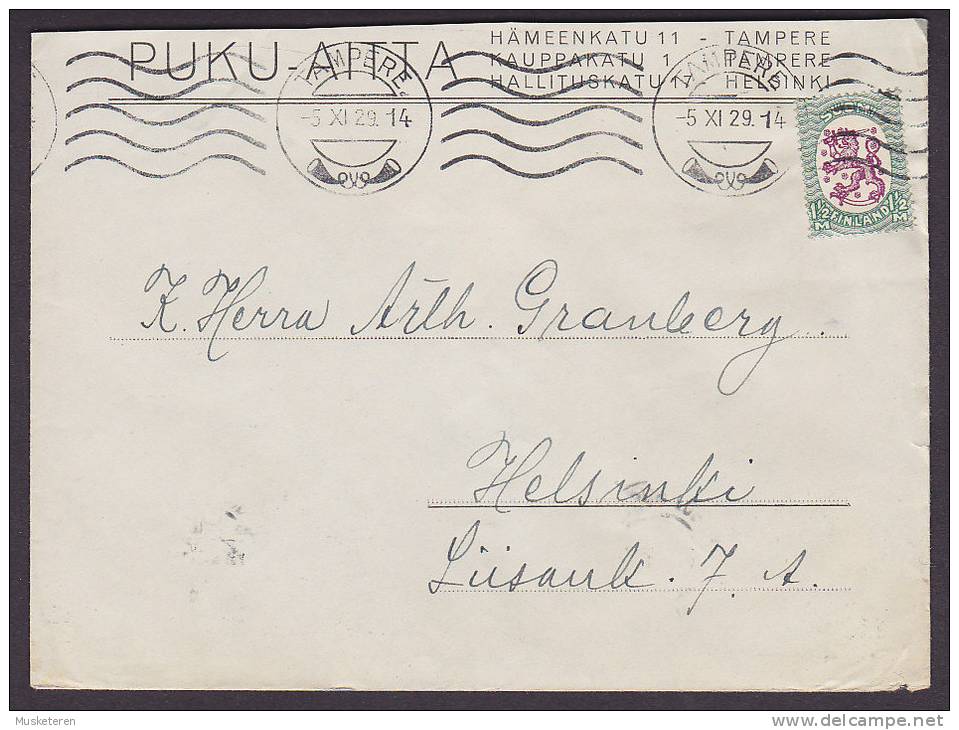 PUKU-AITTA
HÄMEENKATU 11 - TAMPERE
KAUPPAKATU 1 TAMPERE
HALLITUSKATU HELSINKI
TAMPERE
-5 XI 29. 14
TAMPERE
-5 XI 29. 14
SUOMI
1½ FINLAND 1½
M M
K. Herra Arth. Granberg.
Helsinki
Liisank. 7. A.
Musketeren
delcampe.net